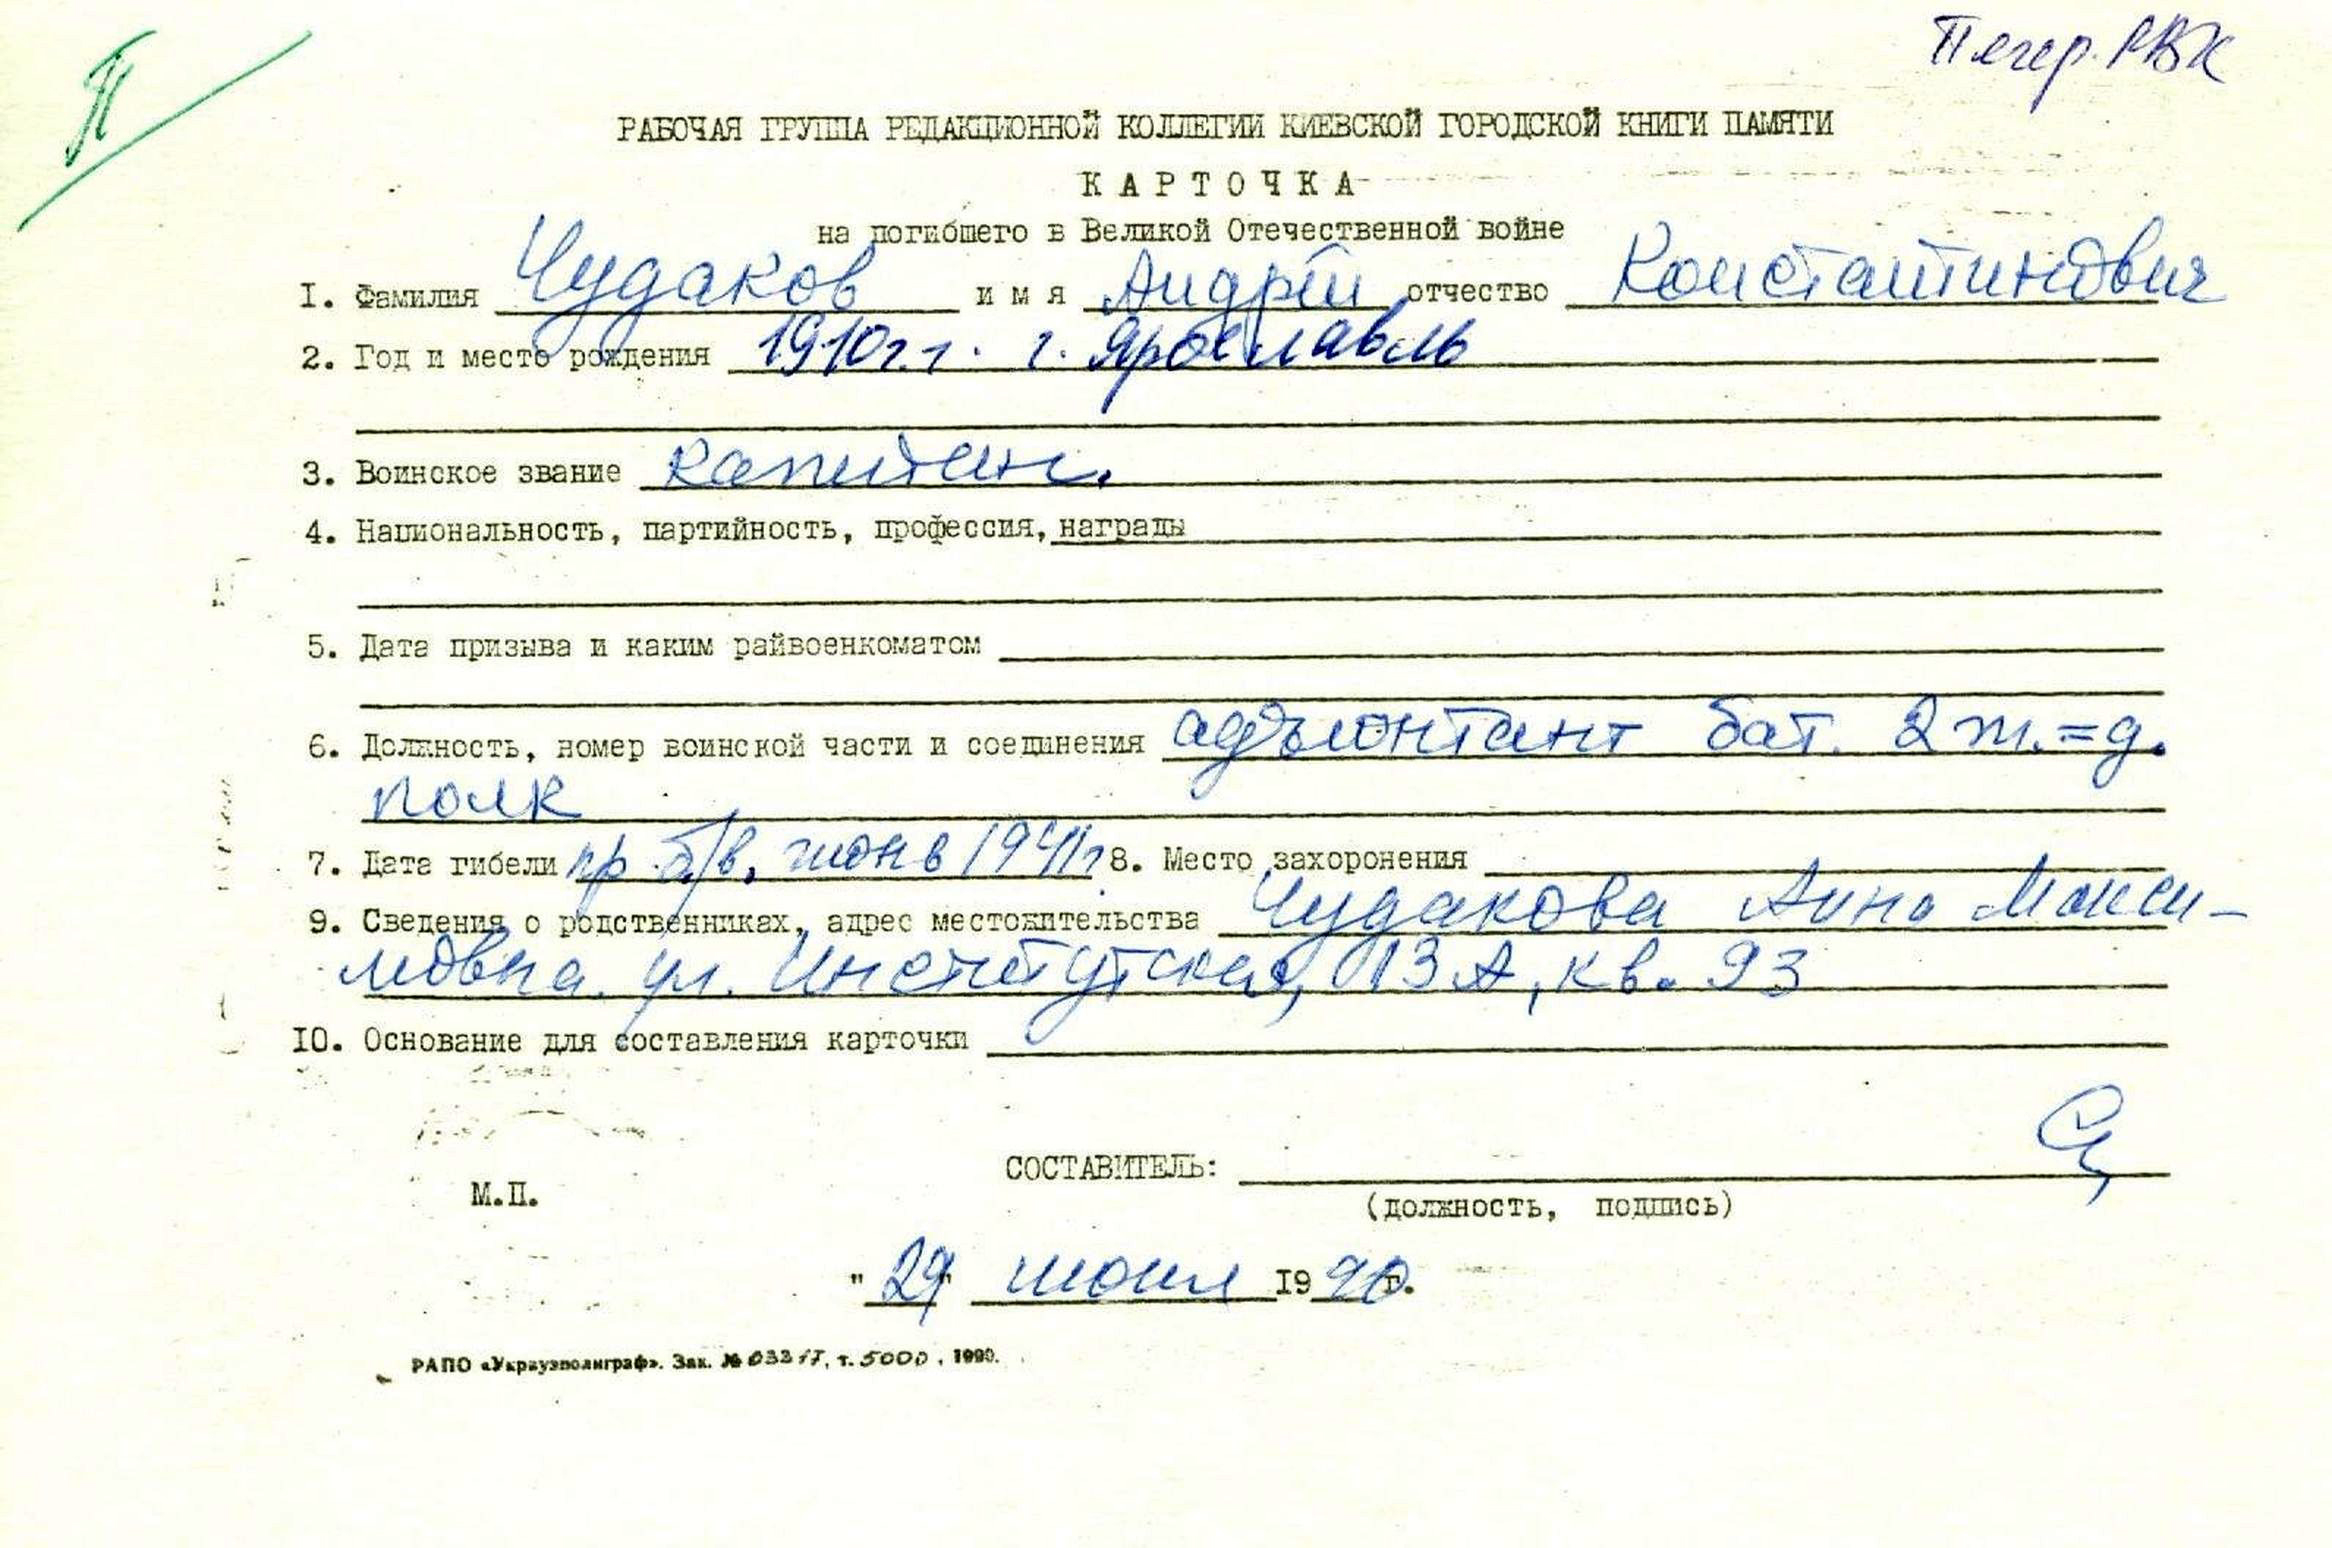 П
Печер. РВК
РАБОЧАЯ ГРУППА РЕДАКЦИОННОЙ КОЛЛЕГИИ КИЕВСКОЙ ГОРОДСКОЙ КНИГИ ПАМЯТИ
КАРТОЧКА
на погибшего в Великой Отечественной войне
I. Фамилия Чудаков имя Андрей отчество Константинович
2. Год и место рождения 1910г.г. г. Ярославль
3. Воинское звание капитан.
4. Национальность, партийность, профессия, награды
5. Дата призыва и каким райвоенкоматом
6. Должность, номер воинской части и соединения адъютант бат. 2 ж.=д.
полк
7. Дата гибели пр. б/в. июнь 1941г 8. Место захоронения
9. Сведения о родственниках, адрес местожительства Чудакова Анна Макси-
мовна. ул. Институтская, 13А, кв. 93
10. Основание для составления карточки
СОСТАВИТЕЛЬ:
М.П.
(должность, подпись)
"29" июня 1990г.
РАПО «Укрвузполиграф». Зак. № т. 5000, 1990.